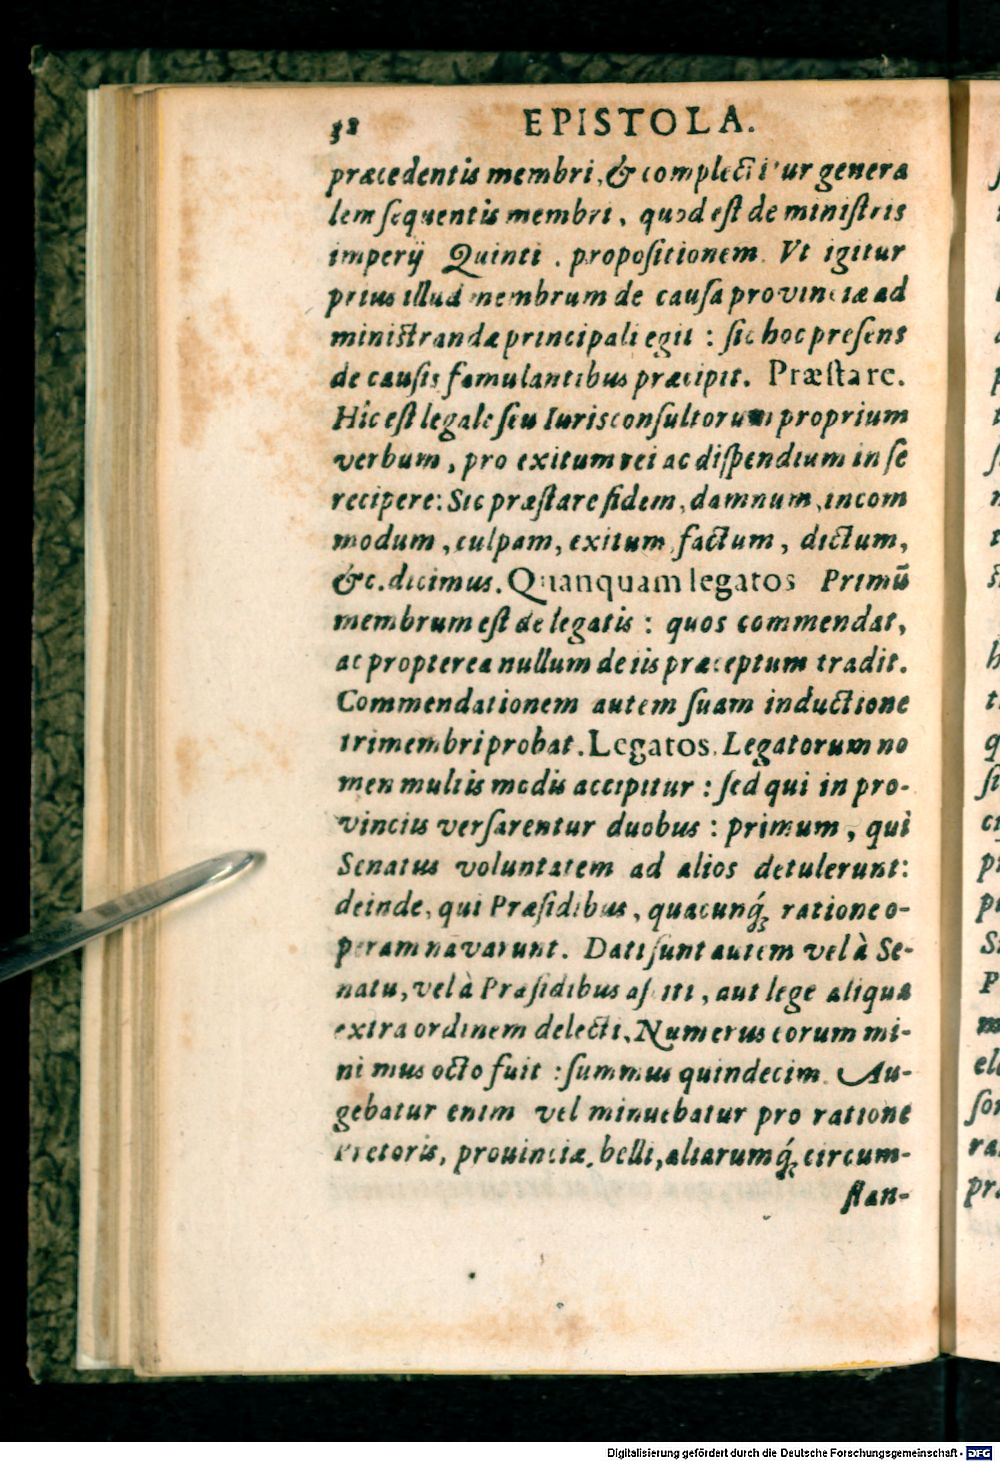 58 EPISTOLA.
præcedentis membri, & complectitur genera
lem sequentis membri, quod est de ministris
imperij Quinti. propositionem. Vt igitur
prius illud membrum de causa provinciæ ad
ministrandæ principali egit: sic hoc presens
de causis famulantibus præcipit. Præstare.
Hic est legale seu Iurisconsultorum proprium
verbum, pro exitum rei ac dispendium in se
recipere: Sic præstare fidem, damnum, incom
modum, culpam, exitum, factum, dictum,
&c. dicimus. Quanquam legatos Primũ
membrum est de legatis: quos commendat,
ac propterea nullum de iis præceptum tradit.
Commendationem autem suam inductione
trimembri probat. Legatos. Legatorum no
men multis modis accipitur: sed qui in pro-
vinciis versarentur duobus: primum, qui
Senatus voluntatem ad alios detulerunt:
deinde, qui Præsidibus, quacunq́; ratione o-
peram navarunt. Dati sunt autem vel à Se-
natu, vel à Præsidibus asciti, aut lege aliqua
extra ordinem delecti. Numerus eorum mi-
nimus octo fuit: summus quindecim. Au-
gebatur enim vel minuebatur pro ratione
Pretoris, prouinciæ, belli, aliarumq́; circum-
stan-
Digitalisierung gefördert durch die Deutsche Forschungsgemeinschaft - DFG